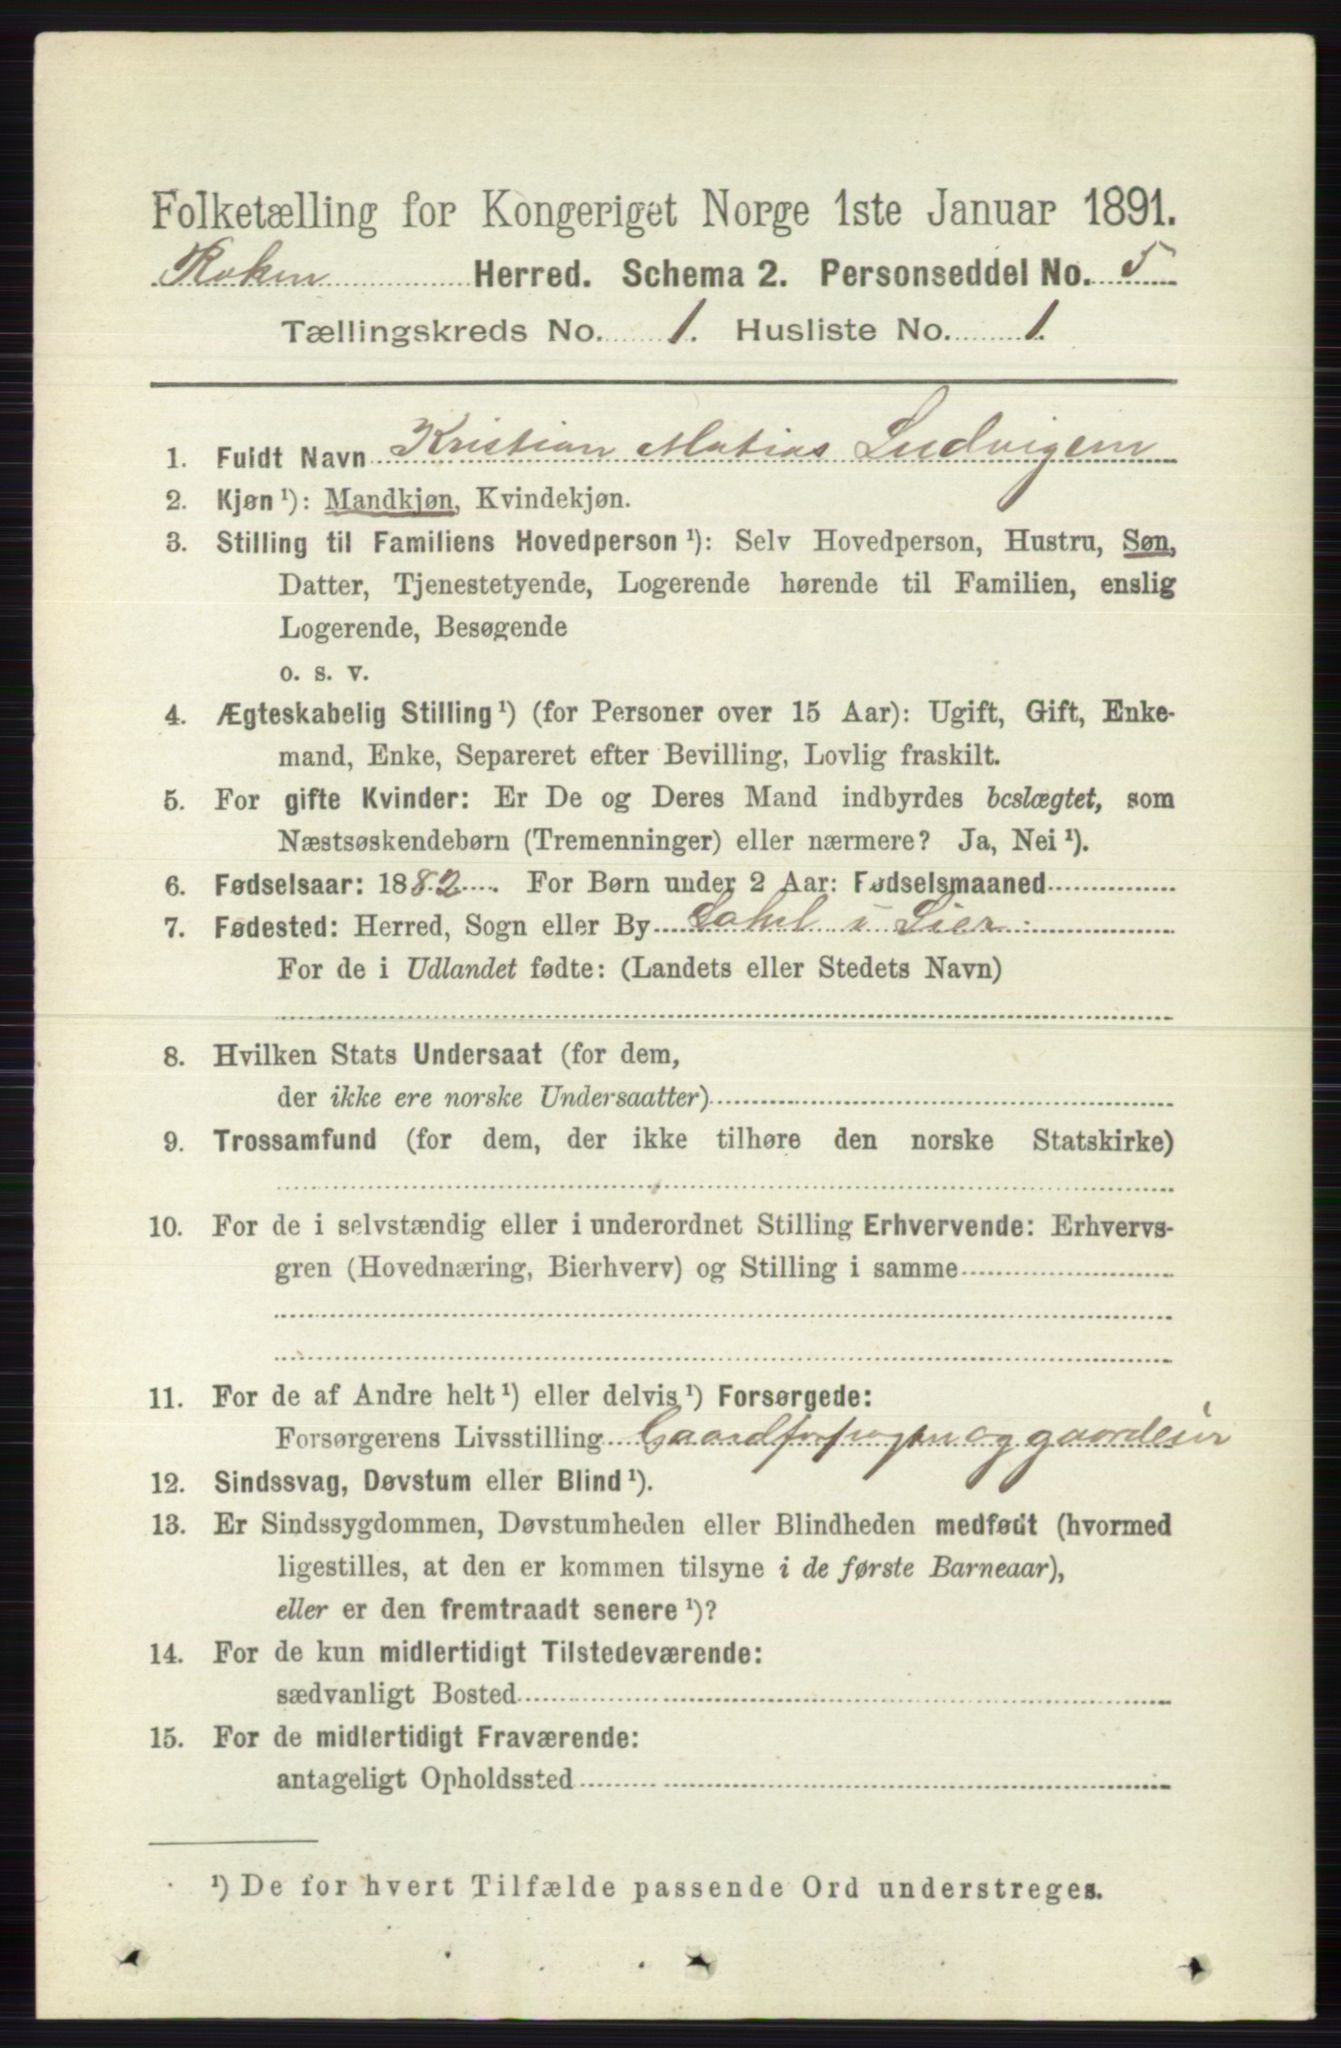 Folketælling for Kongeriget Norge 1ste Januar 1891.
Røken Herred. Schema 2. Personseddel No. 5
Tællingskreds No. 1. Husliste No. 1.
1. Fuldt Navn Kristian Matias Ludvigsen
2. Kjøn ¹): Mandkjøn, Kvindekjøn.
3. Stilling til Familiens Hovedperson ¹): Selv Hovedperson, Hustru, Søn,
Datter, Tjenestetyende, Logerende hørende til Familien, enslig
Logerende, Besøgende
o. s. v.
4. Ægteskabelig Stilling ¹) (for Personer over 15 Aar): Ugift, Gift, Enke-
mand, Enke, Separeret efter Bevilling, Lovlig fraskilt.
5. For gifte Kvinder: Er De og Deres Mand indbyrdes beslægtet, som
Næstsøskendebørn (Tremenninger) eller nærmere? Ja, Nei ¹).
6. Fødselsaar: 1882. For Børn under 2 Aar: Fødselsmaaned
7. Fødested: Herred, Sogn eller By i Lier
For de i Udlandet fødte: (Landets eller Stedets Navn)
8. Hvilken Stats Undersaat (for dem,
der ikke ere norske Undersaatter)
9. Trossamfund (for dem, der ikke tilhøre den norske Statskirke)
10. For de i selvstændig eller i underordnet Stilling Erhvervende: Erhvervs-
gren (Hovednæring, Bierhverv) og Stilling i samme
11. For de af Andre helt ¹) eller delvis ¹) Forsørgede:
Forsørgerens Livsstilling og gaardeier
12. Sindssvag, Døvstum eller Blind ¹).
13. Er Sindssygdommen, Døvstumheden eller Blindheden medfødt (hvormed
ligestilles, at den er kommen tilsyne i de første Barneaar),
eller er den fremtraadt senere ¹)?
14. For de kun midlertidigt Tilstedeværende:
sædvanligt Bosted
15. For de midlertidigt Fraværende:
antageligt Opholdssted
¹) De for hvert Tilfælde passende Ord understreges.